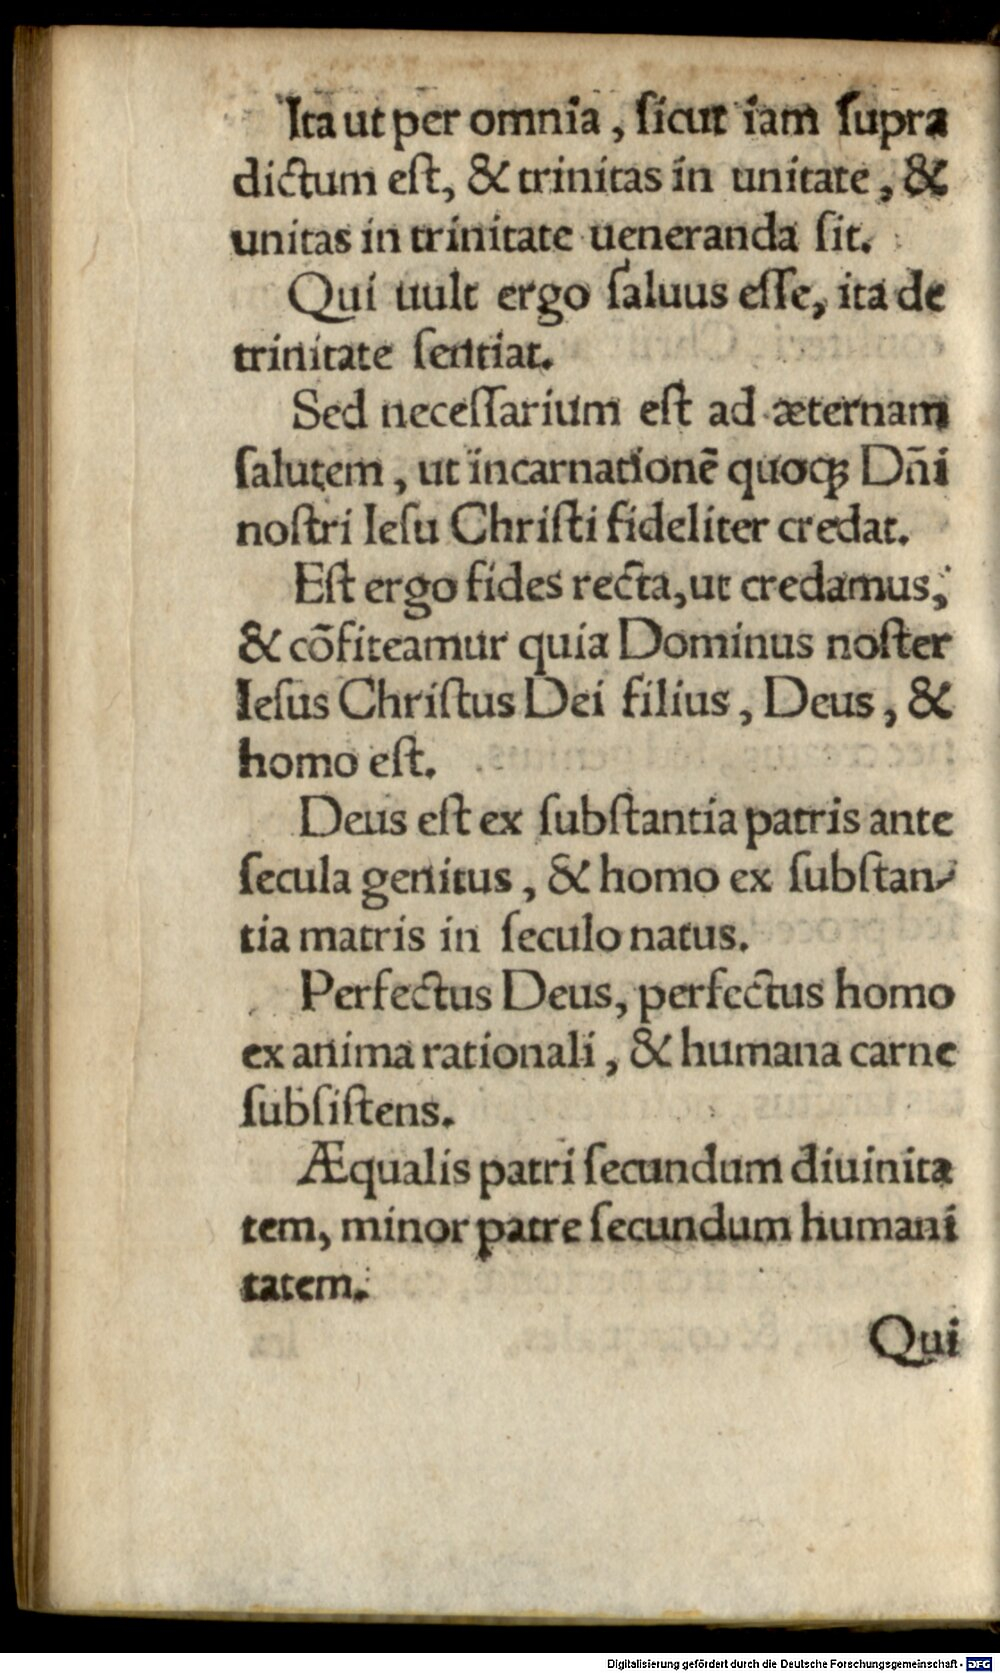 Ita ut per omnia, ſicut iam ſupra
dictum eſt, & trinitas in unitate, &
unitas in trinitate ueneranda ſit.
Qui uult ergo ſaluus eſſe, ita de
trinitate ſentiat.
Sed neceſſarium eſt ad æternam
ſalutem, ut incarnationē quoqꝫ Dñi
noſtri Ieſu Chriſti fideliter credat.
Eſt ergo fides recta, ut credamus,
& cōfiteamur quia Dominus noſter
Ieſus Chriſtus Dei filius, Deus, &
homo eſt.
Deus eſt ex ſubſtantia patris ante
ſecula genitus, & homo ex ſubſtan-
tia matris in ſeculo natus.
Perfectus Deus, perfectus homo
ex anima rationali, & humana carne
ſubſiſtens.
Æqualis patri ſecundum diuinita
tem, minor patre ſecundum humani
tatem.
Qui
Digitalisierung gefördert durch die Deutsche Forschungsgemeinschaft - DFG